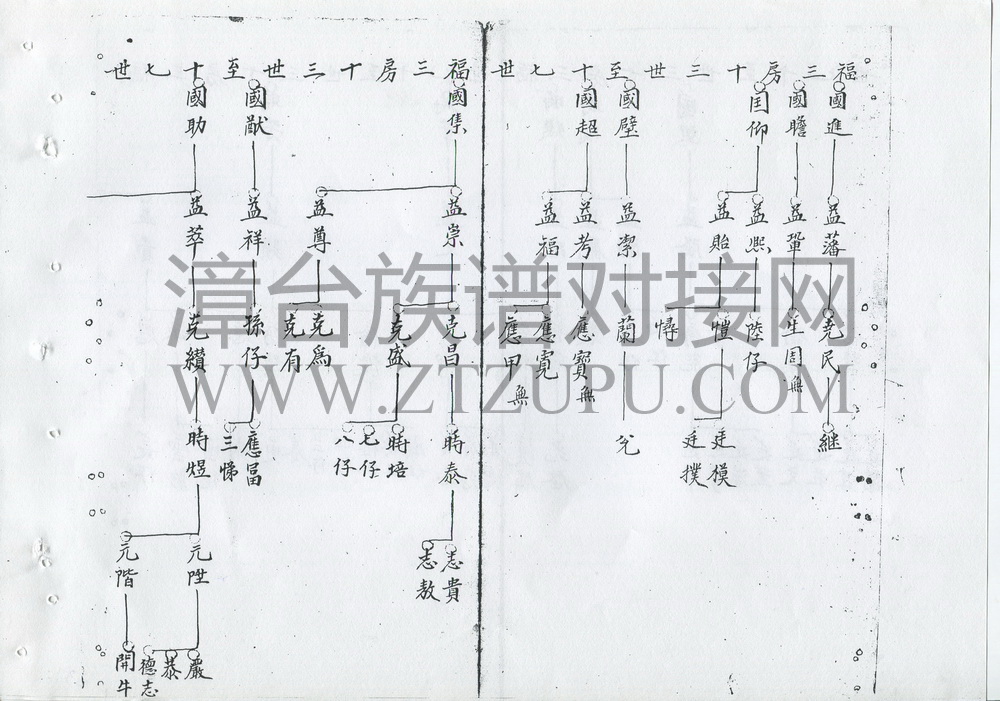 福三房十三世至十七世
國進
益藩
克民
繼
國瞻
益鞏
生周無
囯仰
益熙
陸仔
益貽
愷
廷模
廷撲
憳
國璧
益潔
蘭
允
國超
益考
應寶無
益福
應霓
應甲無
福三房十三世至十七世
國集
益崇
克昌
時泰
志貴
志敖
克盛
時培
七仔
八仔
益尊
克為
克有
國猷
益祥
孫仔
應冨
三悌
國助
益萃
克纘
時煜
元陞
嚴
恭
德志
元階
開牛
漳台族谱对接网
WWW.ZTZUPU.COM